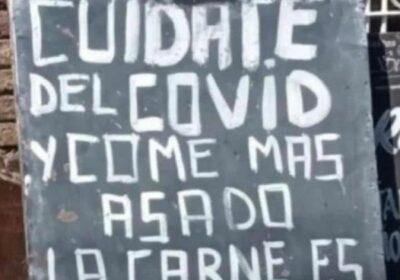 CUIDATE
DEL COVID
Y COME MAS
ASADO
LA CARNE ES